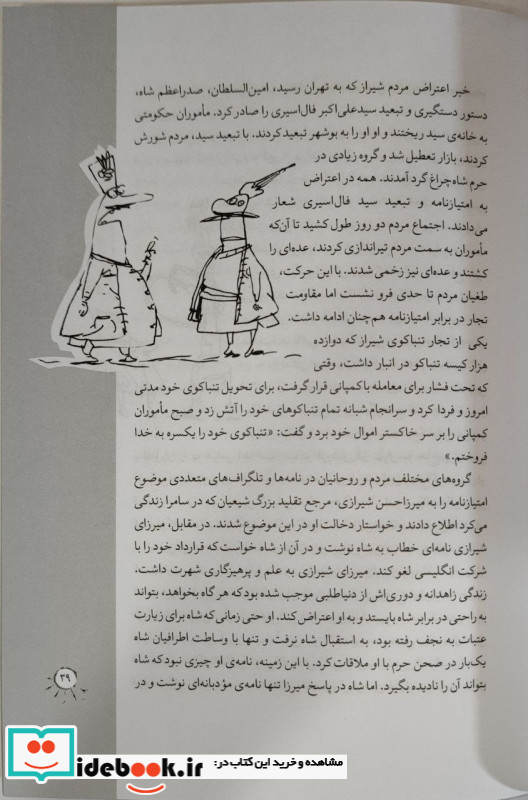 خبر اعتراض مردم شیراز که به تهران رسید، امین‌السلطان، صدراعظم شاه،
دستور دستگیری و تبعید سیدعلی‌اکبر فال‌اسیری را صادر کرد. مأموران حکومتی
به خانه‌ی سید ریختند و او او را به بوشهر تبعید کردند. با تبعید سید، مردم شورش
کردند، بازار تعطیل شد و گروه زیادی در
حرم شاه‌چراغ گرد آمدند. همه در اعتراض
به امتیازنامه و تبعید سید فال‌اسیری شعار
می‌دادند. اجتماع مردم دو روز طول کشید تا آن‌که
مأموران به سمت مردم تیراندازی کردند، عده‌ای را
کشتند و عده‌ای نیز زخمی شدند. با این حرکت،
طغیان مردم تا حدی فرو نشست اما مقاومت
تجار در برابر امتیازنامه هم‌چنان ادامه داشت.
یکی از تجار تنباکوی شیراز که دوازده
هزار کیسه تنباکو در انبار داشت، وقتی
که تحت فشار برای معامله با کمپانی قرار گرفت، برای تحویل تنباکوی خود مدتی
امروز و فردا کرد و سرانجام شبانه تمام تنباکوهای خود را آتش زد و صبح مأموران
کمپانی را بر سر خاکستر اموال خود برد و گفت: «تنباکوی خود را یکسره به خدا
فروختم.»
گروه‌های مختلف مردم و روحانیان در نامه‌ها و تلگراف‌های متعددی موضوع
امتیازنامه را به میرزاحسن شیرازی، مرجع تقلید بزرگ شیعیان که در سامرا زندگی
می‌کرد اطلاع دادند و خواستار دخالت او در این موضوع شدند. در مقابل، میرزای
شیرازی نامه‌ای خطاب به شاه نوشت و در آن از شاه خواست که قرارداد خود را با
شرکت انگلیسی لغو کند. میرزای شیرازی به علم و پرهیزگاری شهرت داشت.
زندگی زاهدانه و دوری‌اش از دنیاطلبی موجب شده بود که هر گاه بخواهد، بتواند
به راحتی در برابر شاه بایستد و به او اعتراض کند. او حتی زمانی که شاه برای زیارت
عتبات به نجف رفته بود، به استقبال شاه نرفت و تنها با وساطت اطرافیان شاه
یک‌بار در صحن حرم با او ملاقات کرد. با این زمینه، نامه‌ی او چیزی نبود که شاه
بتواند آن را نادیده بگیرد. اما شاه در پاسخ میرزا تنها نامه‌ی مؤدبانه‌ای نوشت و در
۳۹
مشاهده و خرید این کتاب در:
idebook.ir